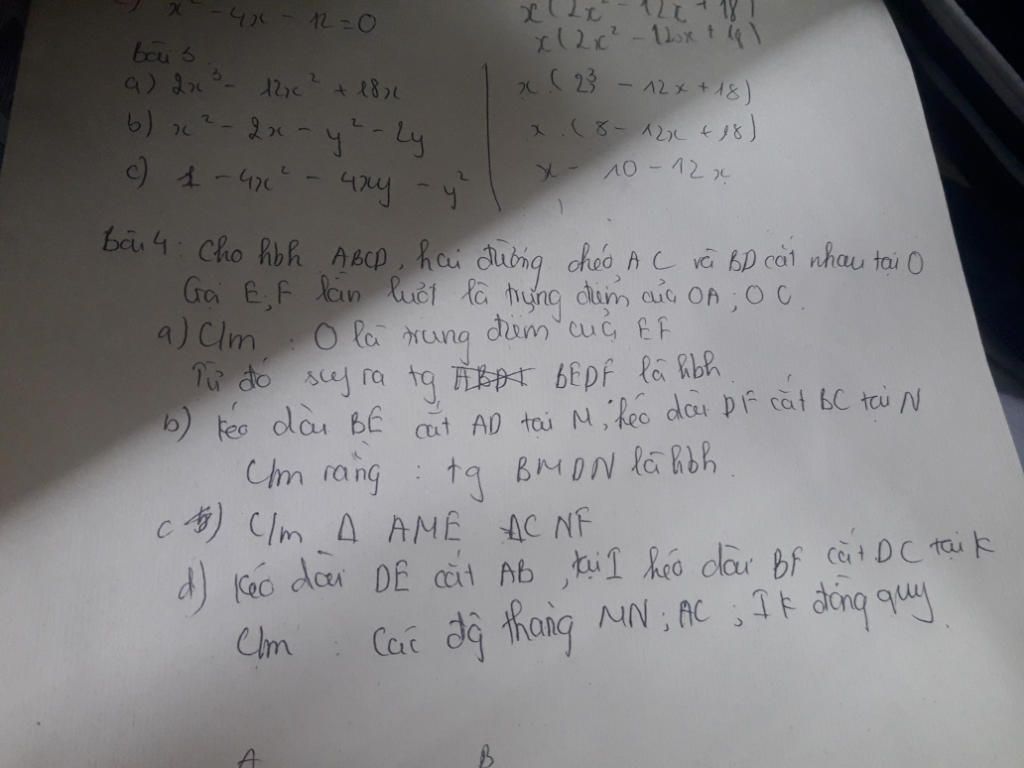 x² - 4x - 12 = 0
x(2x² - 12x + 18)
x(2x² - 12x + 18)
Bài 3
a) 2x³ - 12x² + 18x
x.(2³ - 12x + 18)
b) x² - 2x - y² - 2y
x.(8 - 12x + 18)
c) 1 - 4x² - 4xy - y²
x - 10 - 12x
Bài 4: Cho hbh ABCD, hai đường chéo AC và BD cắt nhau tại O
Gọi E, F lần lượt là trung điểm của OA; OC.
a) C/m: O là trung điểm của EF
Từ đó suy ra tg BEDF là hbh
b) kéo dài BE cắt AD tại M; kéo dài DF cắt BC tại N
C/m rằng: tg BMDN là hbh.
c) C/m Δ AME ΔCNF
d) kéo dài DE cắt AB, tại I kéo dài BF cắt DC tại K
C/m: Các đg thẳng MN; AC; IK đồng quy.
A B